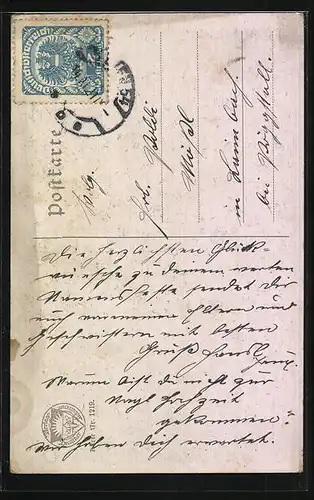 Deutschösterreich
Postkarte
Frl. Poldi
in
bei Pöggstall.
Die herzlichsten Glück-
wünsche zu deinem werten
Namensfeste sendet Dir
und Eltern und
Geschwistern mit besten
Gruß Hansl
Warum bist du nicht zur
Hochzeit
gekommen?
wir haben Dich erwartet.
Nr. 1219.